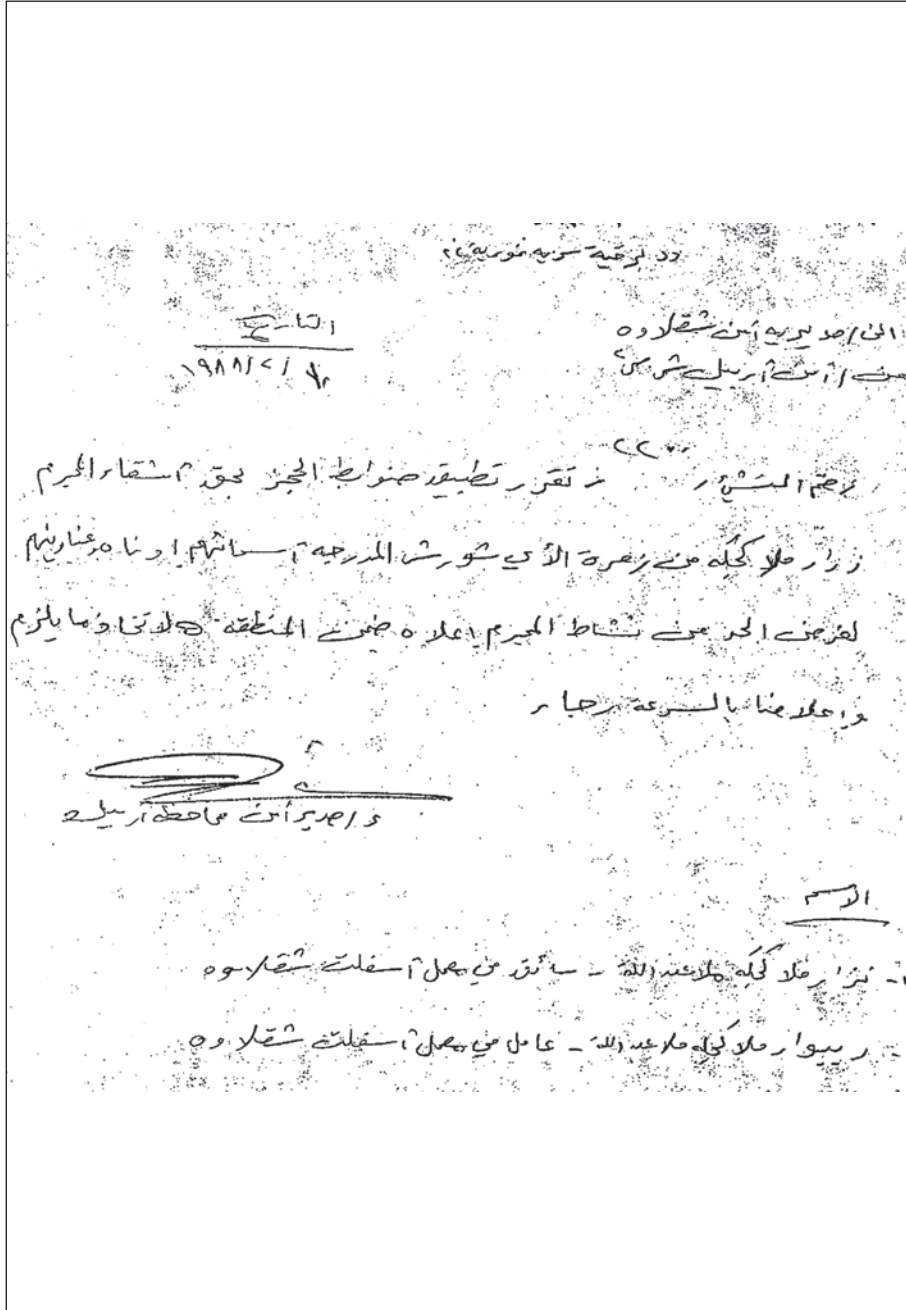 برقية سرية فورية
الى/مديرية أمن شقلاوه
من/أمن أربيل ش س٢
التاريخ
١٩٨٨/٢/
رقم المنشئ ٢٢٠٠ تقرر تطبيق ضوابط الحجز بحق أشقاء المجرم
زرار ملا كچكه من زمرة الآي شورش المدرجه أسمائهم ادناه وعناوينهم
لغرض الحد من نشاط المجرم اعلاه ضمن المنطقه لاتخاذ مايلزم
واعلامنا بالسرعة رجاء
ع/مدير أمن محافظة أربيل
الاسم
١- نزار ملا كچكه ملا عبدالله - سائق في معمل أسفلت شقلاوه
- ريبوار ملا كچكه ملا عبدالله - عامل في معمل أسفلت شقلاوه